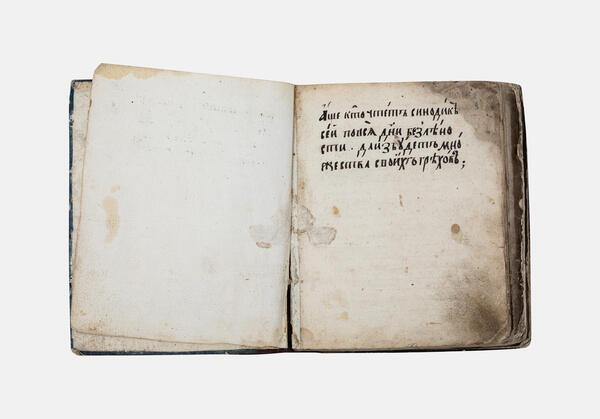 А҆́ще кто̀ чте́тъ синоди́къ
се́й повсѧ̑ дни̑ без̾лѣ́но
сти . да и҆збꙋ́детъ мно́
жества свои́хъ грѣхо́въ;